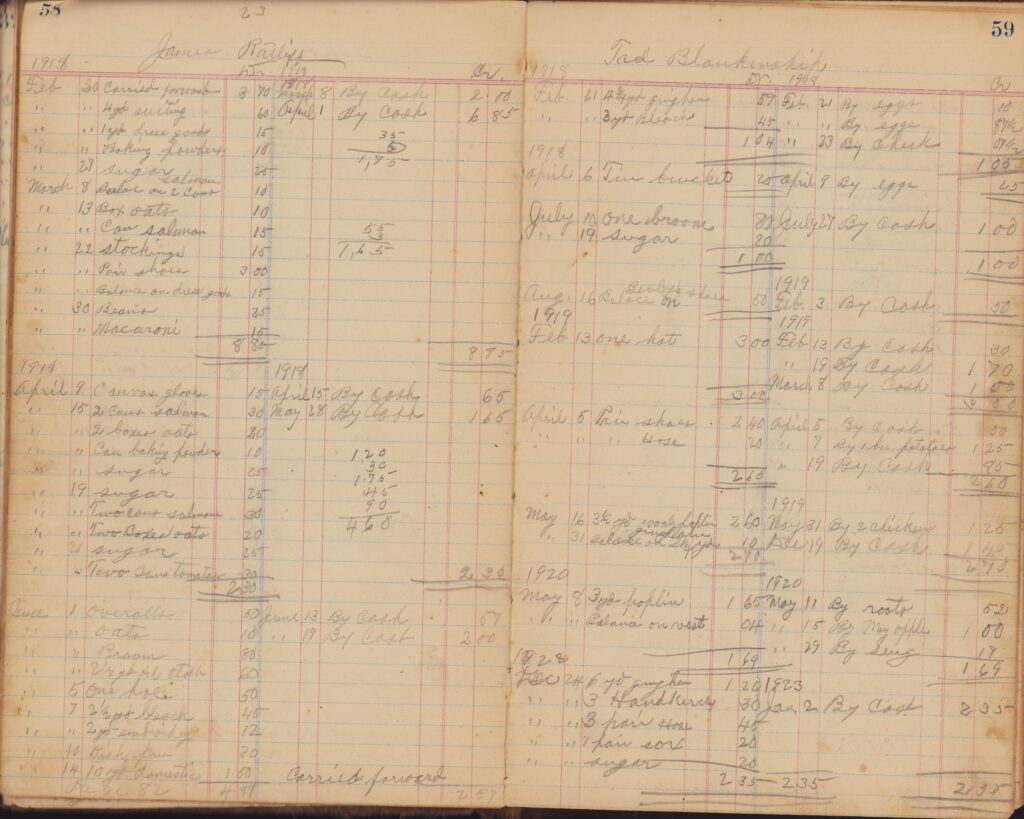 58
23
James Ratliff
1918 Dr. 1919 Cr.
Feb 20 Carried forward 3 70 1918 March 8 By Cash 2 00
" " 4 yd suiting 60 April 1 By Cash 6 85
" " 1 yd dress goods 15 35
" " Baking powders 10 5
" 27 sugar 25 1,75
March 8 Balance on 2 Cans salmon 10
" 13 Box oats 10
" " Can salmon 15 55
" 22 stockings 15 3
1,65
" " Pair shoes 3 00
" " Balance on dress goods 15
" 30 Beans 25
" " Macaroni 15
8 85 8 85
1918 1918
April 9 Canvas gloves 15 April 15 By Cash 65
" 15 2 Cans salmon 30 May 28 By Cash 1 65
" " 2 boxes oats 20
" " Can baking powders 10 1 20
" " sugar 25 30
1,75
" 19 sugar 25 45
" " Two Cans salmon 30 90
" " Two Boxes oats 20 4 60
" 21 sugar 25
" Two Cans tomatoes 30
2 30 2 30
June 1 overalls 50 June 13 By Cash 57
" " oats 10 " 19 By Cash 2 00
" " Broom 80
" " oil 60
" 5 One hoe 50
" 7 bleach 45
" " 2 yd 12
" 10 Dish pan 30
" 14 10 yd domestic 1 50 Carried forward
4 2 57
59
Tad Blankinship
1918 Dr. 1918 Cr
Feb. 21 gingham 59 Feb. 21 By eggs 10
" " 3 yd Bleach 45 " " By eggs
1 04 " 23 By Check
1918 1 05
April 6 Tin bucket 25 April 9 By eggs 25
July 10 one broom 80 July 27 By Cash 1 00
" 19 sugar 20
1 00 1 00
1919
Aug. 16 Balance on shoes 50 Feb. 3 By Cash 50
1919 1919
Feb 13 one hat 3 00 Feb 13 By Cash 30
" 19 By Cash 1 70
March 8 By Cash 1 00
3 00 3 00
April 5 Pair shoes 2 40 April 5 By Cash 50
" " " Hose 20 " 7 By 1 bu. potatoes 1 25
" 19 By Cash 85
2 60 2 60
1919
May 16 3½ yd wool poplin 2 60 May 31 By 2 chickens 1 25
" 31 Balance on gingham 10 19 By Cash 1 45
2 70 2 70
1920 1920
May 8 3 yd poplin 1 65 May 11 By roots 52
" " Balance on vest 04 " 15 By May apple 1 00
" 29 By 17
1 69 1 69
1922
Dec 24 6 yd gingham 1 20 1923
" " 3 Handkerchs 30 Jan. 2 By Cash 2 35
" " 3 pair Hose 45
" " 1 pair sox 20
" " sugar 20
2 35 2 35 2 35